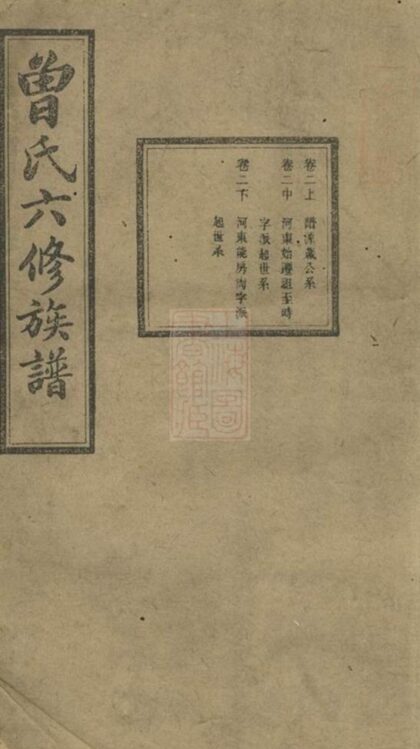 曾氏六修族譜
卷二上 譜派歲公系
卷二中 河東始遷祖至時
字派起世系
卷二下 河東龍房尚字派
起世系